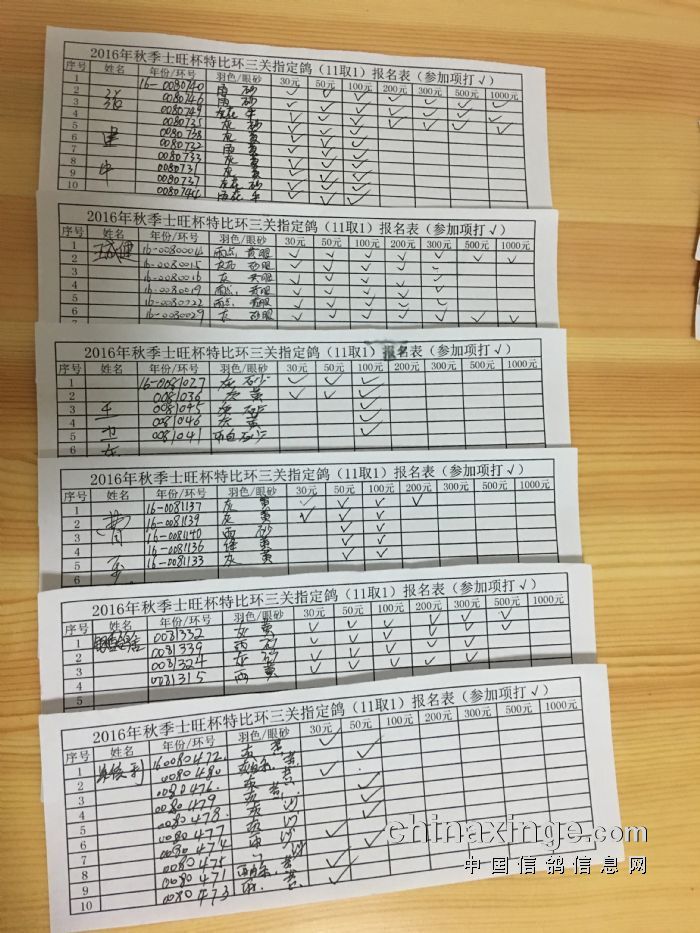 2016年秋季士旺杯特比环三关指定鸽（11取1）报名表（参加项打√）
序号 姓名 年份/环号 羽色/眼砂 30元 50元 100元 200元 300元 500元 1000元
1 16-0080740 雨 砂
2 0080746 雨 砂
3 0080749
4 0080735 灰 砂
5 0080738 灰 黄
6 0080732 雨 黄
7 0080733 灰 黄
8 0080731 灰 黄
9 0080737 砂
10
2016年秋季士旺杯特比环三关指定鸽（11取1）报名表（参加项打√）
序号 姓名 年份/环号 羽色/眼砂 30元 50元 100元 200元 300元 500元 1000元
1 16-0080014 雨点 黄眼
2 16-0080015 砂眼
3 16-0080016 灰
4 16-0080019 雨点 黄眼
5 16-0080022 雨点 黄眼
6 16-0080029 灰 砂眼
2016年秋季士旺杯特比环三关指定鸽（11取1）报名表（参加项打√）
序号 姓名 年份/环号 羽色/眼砂 30元 50元 100元 200元 300元 500元 1000元
1 16-0081027 灰 砂
2 0081036 灰 黄
3 王 0081045 灰 砂
4 卫 0081046 灰 黄
5 0081041 雨白 砂
6
2016年秋季士旺杯特比环三关指定鸽（11取1）报名表（参加项打√）
序号 姓名 年份/环号 羽色/眼砂 30元 50元 100元 200元 300元 500元 1000元
1 16-0081137 灰 黄
2 16-0081139 灰 黄
3 16-0081140 雨 砂
4 16-0081136 绛 黄
5 16-0081133 灰 黄
6
2016年秋季士旺杯特比环三关指定鸽（11取1）报名表（参加项打√）
序号 姓名 年份/环号 羽色/眼砂 30元 50元 100元 200元 300元 500元 1000元
1 0081332 灰 黄
2 0081339 雨 砂
3 0081324 灰 砂
4 0081315 雨 黄
5
2016年秋季士旺杯特比环三关指定鸽（11取1）报名表（参加项打√）
序号 姓名 年份/环号 羽色/眼砂 30元 50元 100元 200元 300元 500元 1000元
1 160080472
2 0080480
3 0080476
4 0080479
5 0080478 灰 沙
6 0080477 灰 沙
7 0080474 沙
8 0080475
9 0080471
10 0080473
chinaxinge.com
中国信鸽信息网